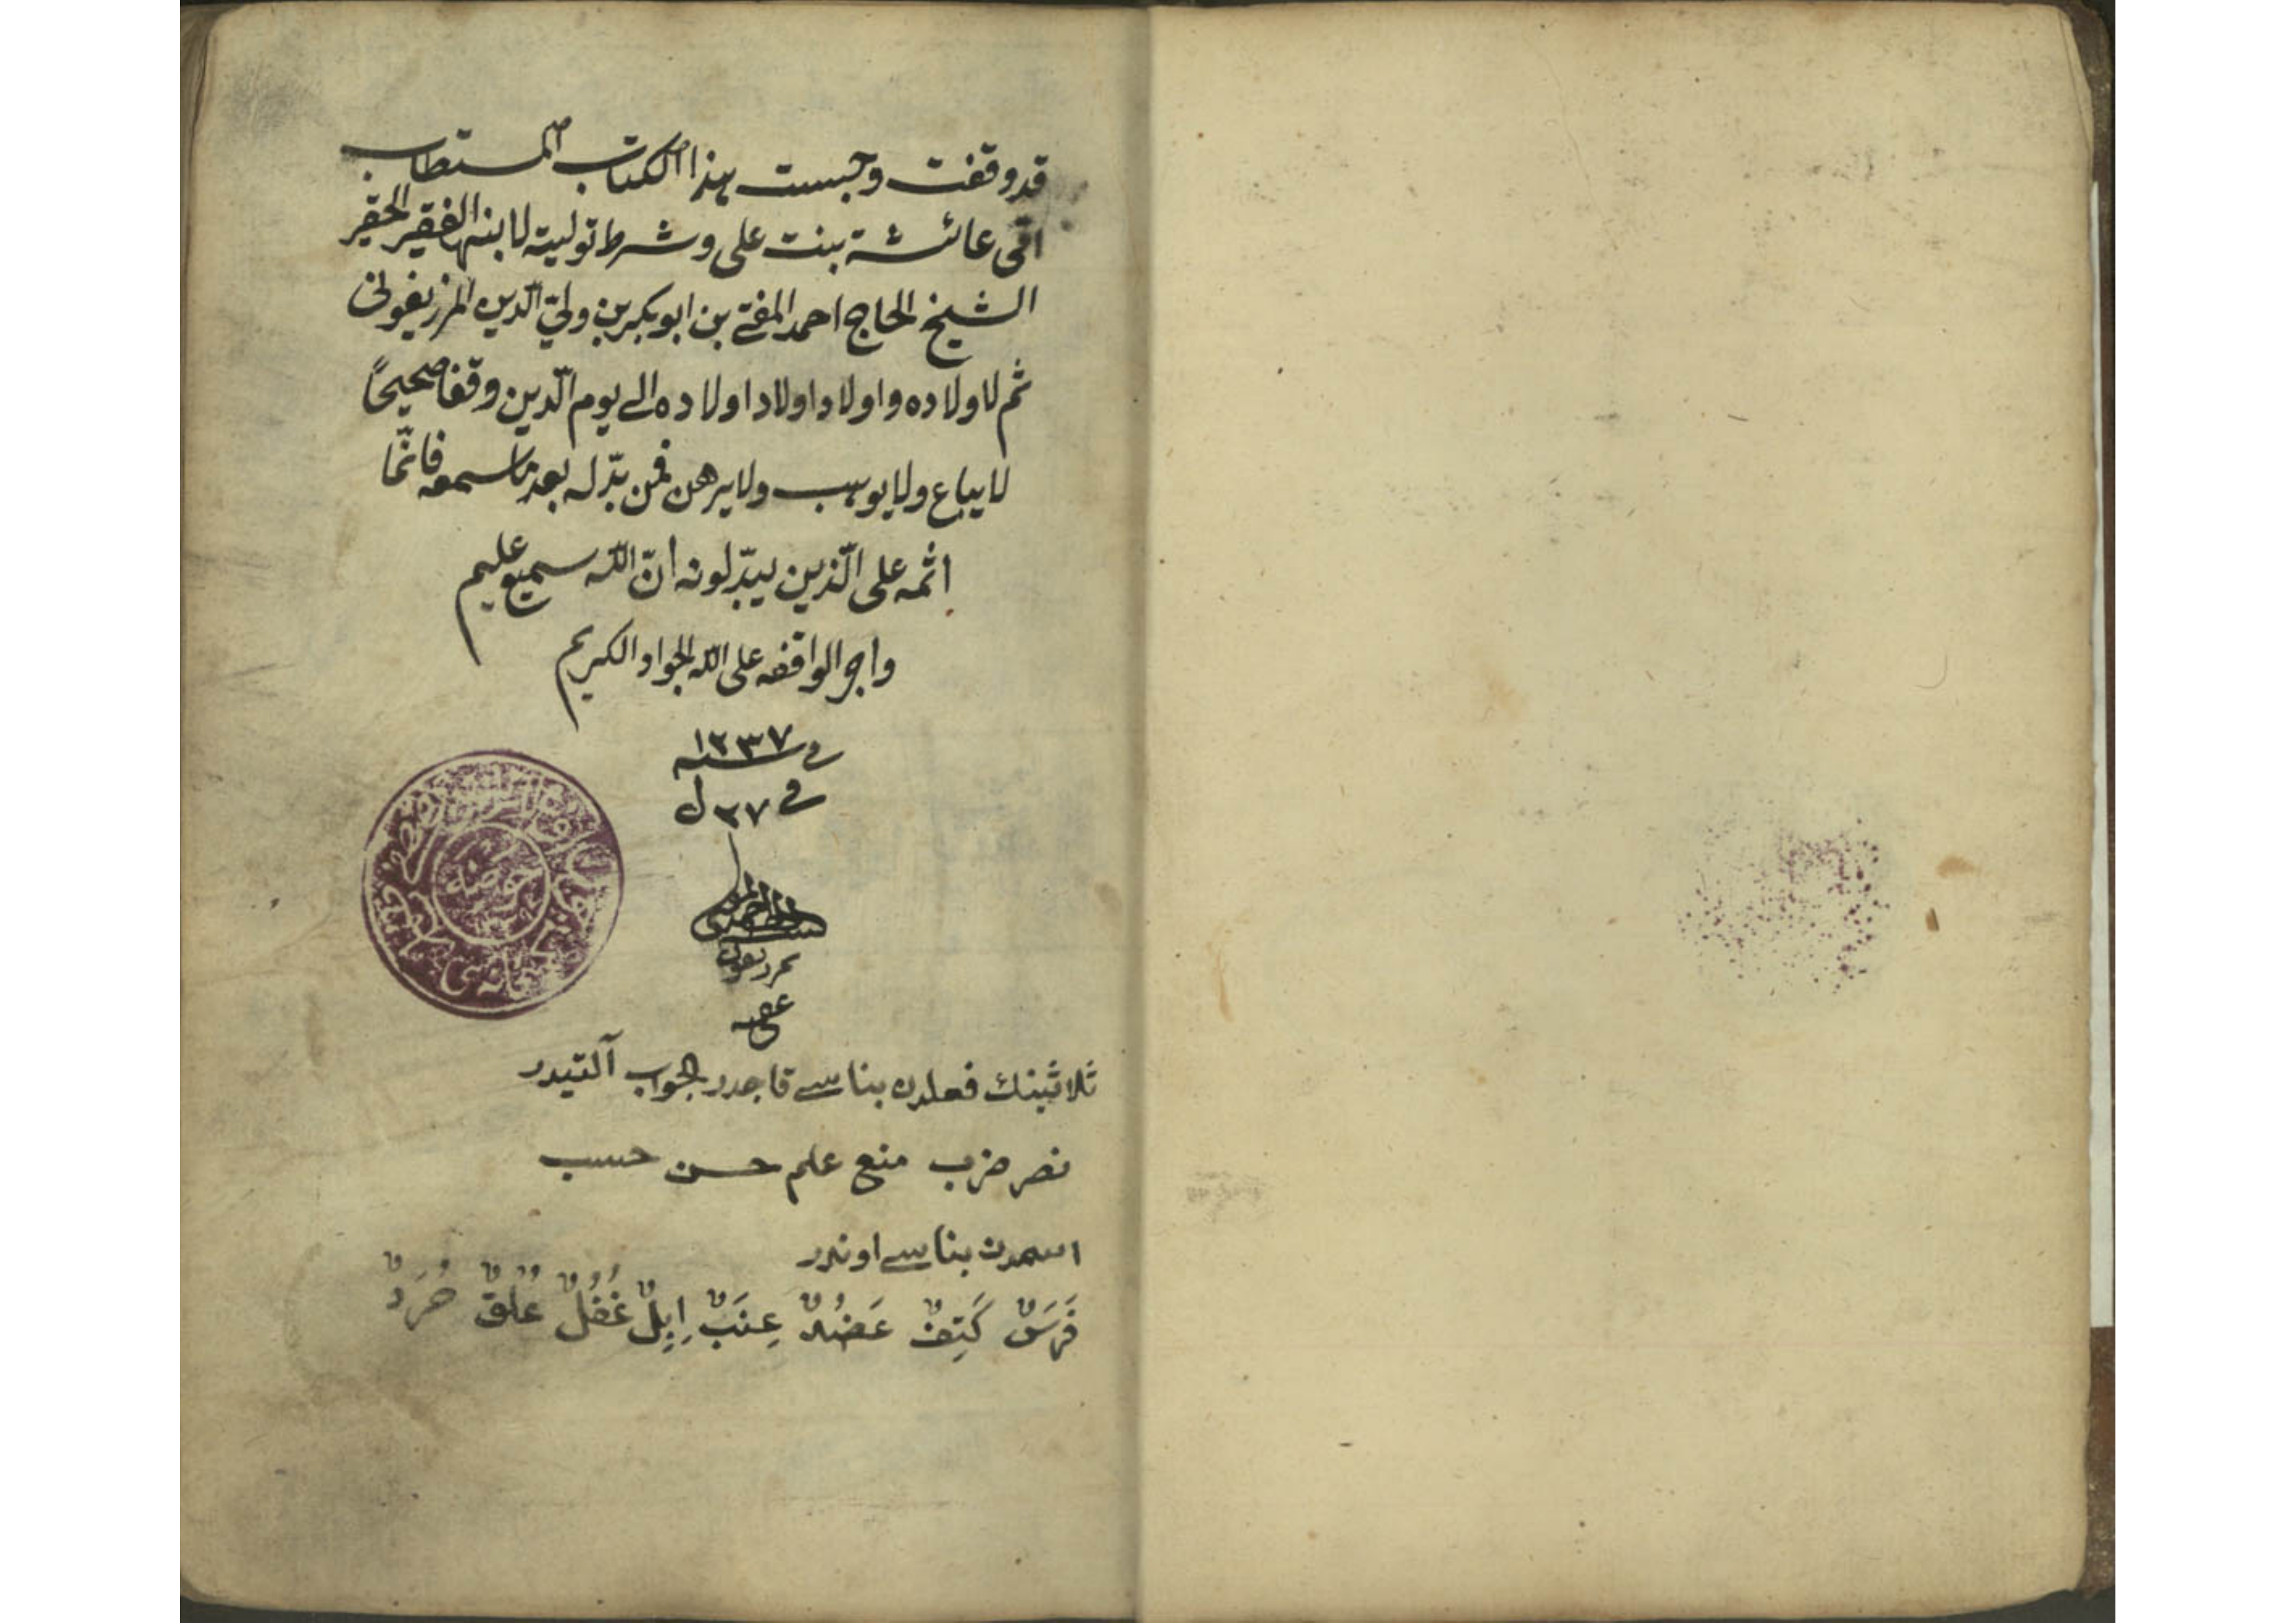 قد وقفت وحبست هذا الكتاب المستطاب
امى عائشة بنت على وشرط توليته لابنها الفقير الحقير
الشيخ الحاج احمد المفتى بن ابو بكر بن ولىّ الدّين المرزيفونى
ثم لاولاده واولاد اولاد اولاده الى يوم الدّين وقفا صحيحًا
لا يباع ولا يوهب ولا يرهن فمن بدّله بعد ما سمعه فانّما
اثمه على الّذين يبدّلونه انّ اللّه سميع عليم
واجر الواقفه على اللّه الجواد الكريم
فى سنه ١٢٣٧
فى ٢٧ ل
عفى عنه
ثلاثينك فعلدن بناسى قاچدر الجواب آلتيدر
نصر ضرب منع علم حسن حسب
اسمدن بناسى اوندر
فَرَسٌ كَتِفٌ عَضُدٌ عِنَبٌ اِبِلٌ غُفُلٌ عُلُقٌ صُرَدٌ